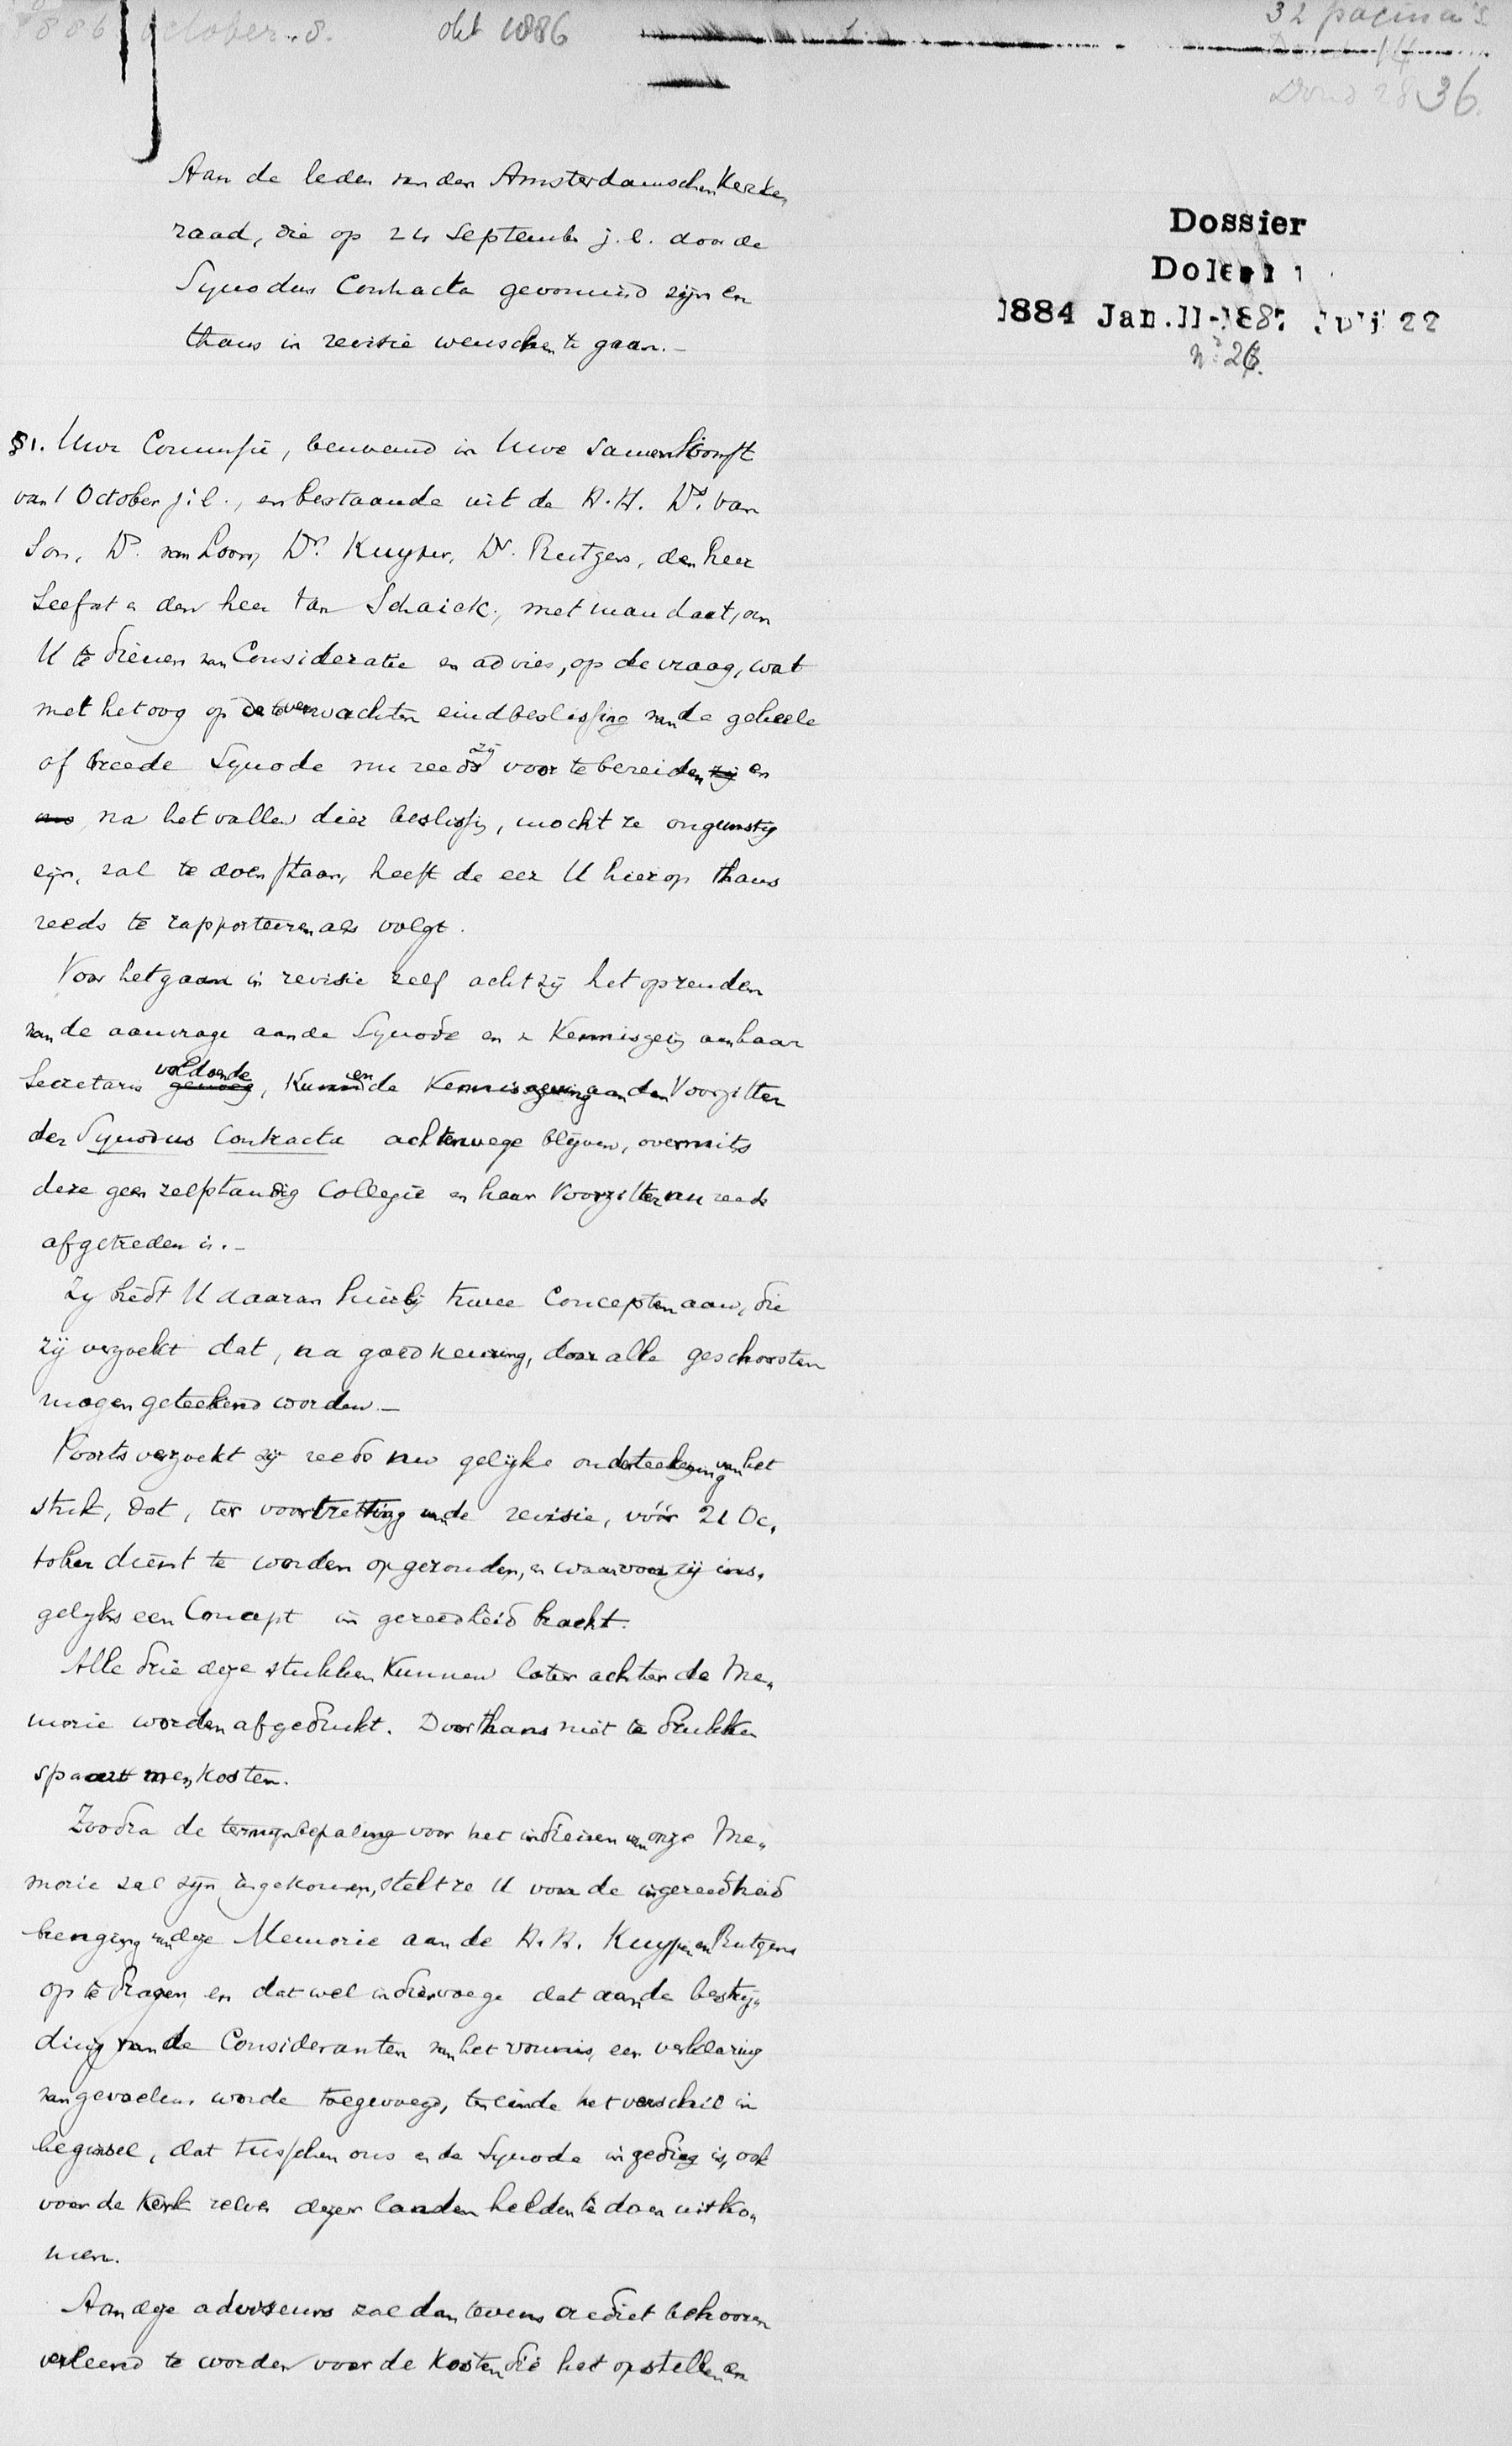 1886 October 8. okt 1886
32 pagina's
36.
Dossier
1884 Jan. 11-1887 Juli 22
Aan de leden van den Amsterdamschen Kerken
raad, die op 24 Septemb j.l. door de
Synodus Contracta gevonnisd zijn en
thans in revisie wenschen te gaan.—
§1. Uwe Commissie, benoemd in Uwe samenkomst
van 1 October j.l., en bestaande uit de H.H. Ds. van
Son, Ds. van Loon, Dr. Kuyper, Dr. Rutgers, den heer
Seefat en den heer van Schaick, met mandaat, om
U te dienen van Consideratie en advies, op de vraag, wat
met het oog op de te verwachten eindbeslissing van de geheele
of breede Synode nu reeds zij voor te bereiden zij en
na het vallen dier beslissg, mocht ze ongunstig
zijn, zal te doen staan, heeft de eer U hierop thans
reeds te rapporteeren als volgt.
Voor het gaan in revisie zelf acht zij het opzenden
van de aanvrage aan de Synode en de Kennisgevg aan haar
Secretaris genoeg voldoende, kunnende de Kennisgeving aan den Voorzitter
der Synodus Contracta achterwege blijven, overmits
deze geen zelfstandig Collegie en haar Voorzitter nu reeds
afgetreden is.—
Zij biedt U daarvan hierbij twee Concepten aan, die
zij verzoekt dat, na goedkeuring, door alle geschorsten
mogen geteekend worden.—
Voorts verzoekt zij reeds nu gelijke onderteekening van het
stuk, dat, ter voortzetting van de revisie, vóór 21 Oc„
tober dient te worden opgezonden, en waarvoor zij ins„
gelijks een Concept in gereedheid bracht.
Alle drie deze stukken kunnen later achter de Me„
morie worden afgedrukt. Door thans niet te drukken
spaart men kosten.
Zoodra de termijnbepaling voor het indienen van onze Me„
morie zal zijn ingekomen, stelt ze U voor de ingereedheid
brenging van deze Memorie aan de H.H. Kuyper en Rutgers
op te dragen, en dat wel in diervoege dat aan de bestrij„
ding van de Consideranten van het vonnis, een verklaring
van gevoelen worde toegevoegd, ten einde het verschil in
beginsel, dat tusschen ons en de Synode in geding is, ook
voor de Kerk zelve dezer landen helder te doen uitko„
men.
Aan deze adviseurs zal dan tevens crediet behooren
verleend te worden voor de kosten die het opstellen en